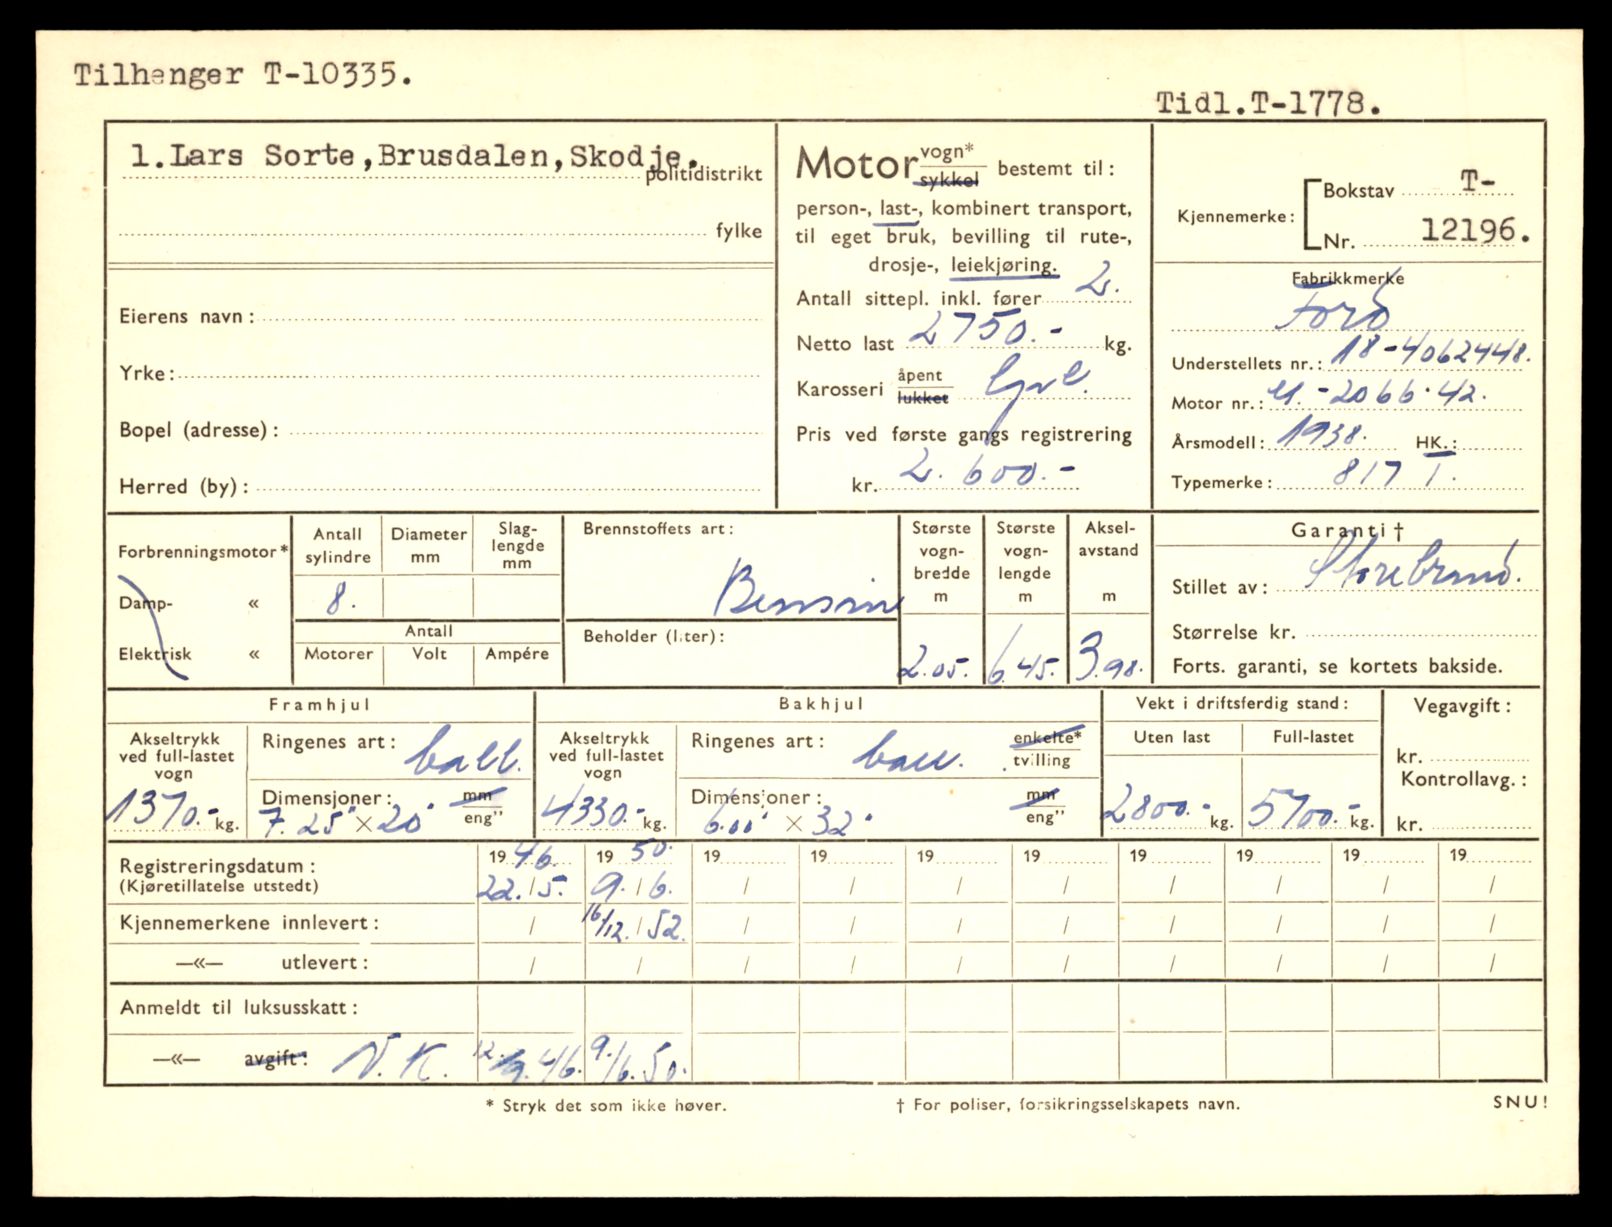 Tilhenger T-10335.
Tidl.T-1778.
1.Lars Sorte,Brusdalen,Skodje.
politidistrikt
fylke
Eierens navn :
Yrke:
Bopel (adresse) :
Herred (by) :
Motor vogn* sykkel bestemt til :
person-, last-, kombinert transport,
til eget bruk, bevilling til rute-,
drosje-, leiekjøring.
Antall sittepl. inkl. fører 2.
Netto last 2750.- kg.
Karosseri åpent lukket
Pris ved første gangs registrering
kr. 2.600.-
Kjennemerke :
Bokstav T-
Nr. 12196.
Fabrikkmerke
Ford
Understellets nr. : 18-4062448.
Motor nr. : -2066.42.
Årsmodell : 1938. HK. :
Typemerke : 817 T.
Forbrenningsmotor*
Damp- «
Elektrisk «
Antall sylindre
Diameter mm
Slag-lengde mm
8.
Antall
Motorer Volt Ampére
Brennstoffets art :
Bensin
Beholder (liter) :
Største vogn-bredde m
2.05.
Største vogn-lengde m
6.45.
Aksel-avstand m
3.98.
Garanti †
Stillet av : Storebrand.
Størrelse kr.
Forts. garanti, se kortets bakside.
Framhjul
Akseltrykk ved full-lastet vogn
1370.- kg.
Ringenes art : ball.
Dimensjoner : mm eng"
7.25 × 20"
Bakhjul
Akseltrykk ved full-lastet vogn
4330.- kg.
Ringenes art : ball. enkelte* tvilling
Dimensjoner : mm eng"
6.00 × 32"
Vekt i driftsferdig stand :
Uten last Full-lastet
2800.- kg. 5700.- kg.
Vegavgift :
kr.
Kontrollavg. :
kr.
Registreringsdatum : 19 46. 19 50. 19 19 19 19 19 19 19 19
(Kjøretillatelse utstedt) 22./5. 9./6. / / / / / / / /
Kjennemerkene innlevert : / 16/12./52. / / / / / / / /
—«— utlevert : / / / / / / / / / /
Anmeldt til luksusskatt :
—«— avgift : N.K. 12./9.46. 9./6.50.
* Stryk det som ikke høver.
† For poliser, forsikringsselskapets navn.
SNU!